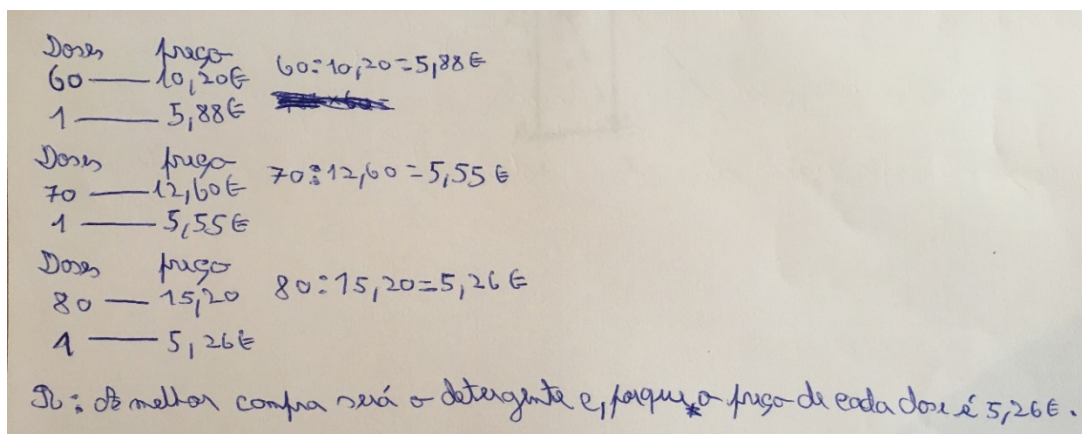 Doses preço
60 — 10,20€ 60:10,20=5,88€
1 — 5,88€
Doses preço
70 — 12,60€ 70:12,60=5,55€
1 — 5,55€
Doses preço
80 — 15,20 80:15,20=5,26€
1 — 5,26€
R: A melhor compra será o detergente e, porque o preço de cada dose é 5,26€.